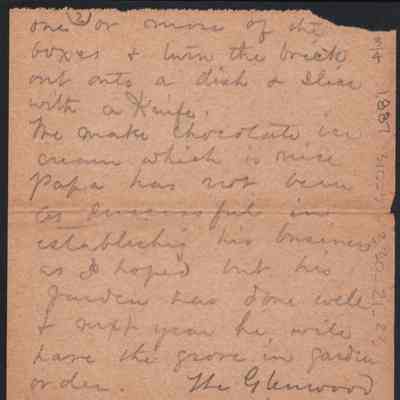 (2)
one or more of the
boxes & turn the brick
out onto a dish & slice
with a Knife.
We make chocolate ice
cream which is nice
Papa has not been
as successful in
establishing his business
as I hoped but his
garden has done well
& next year he will
have the grove in garden
order. The Glenwood
1887